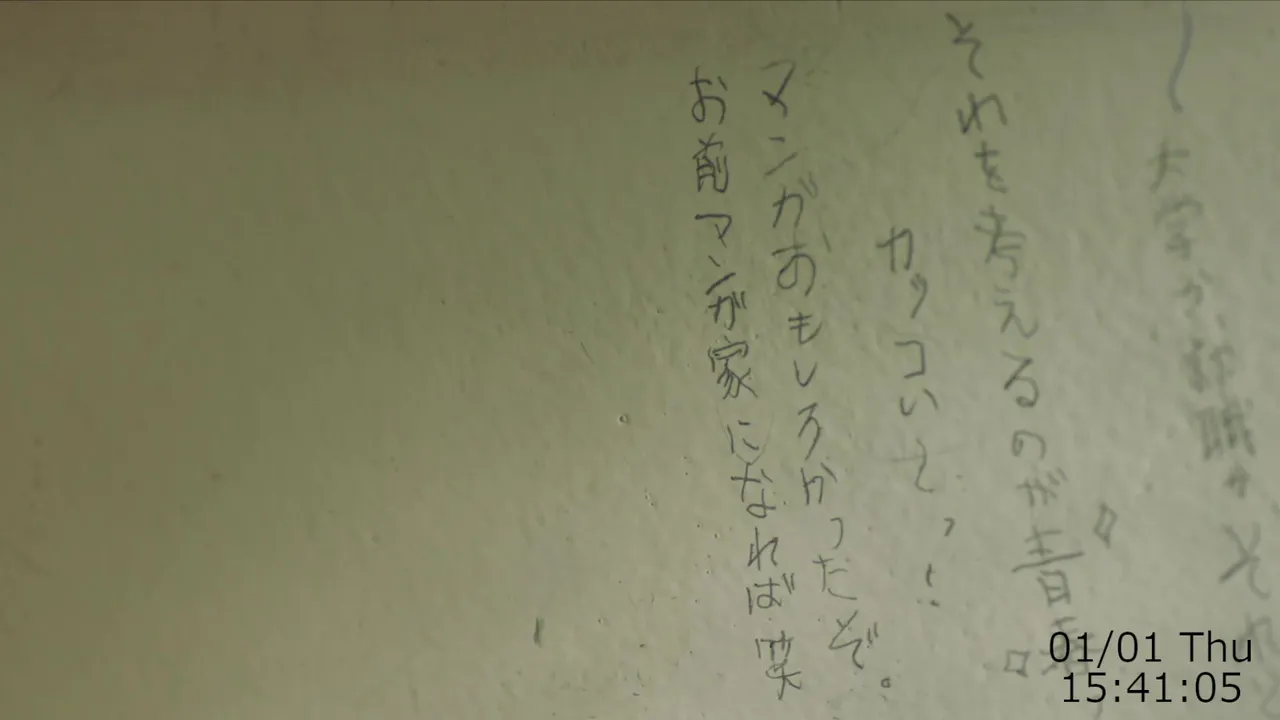 大学か就職か それ
それを考えるのが青春
カッコいいっ!
マンガおもしろかったぞ。
お前マンガ家になれば笑
01/01 Thu
15:41:05